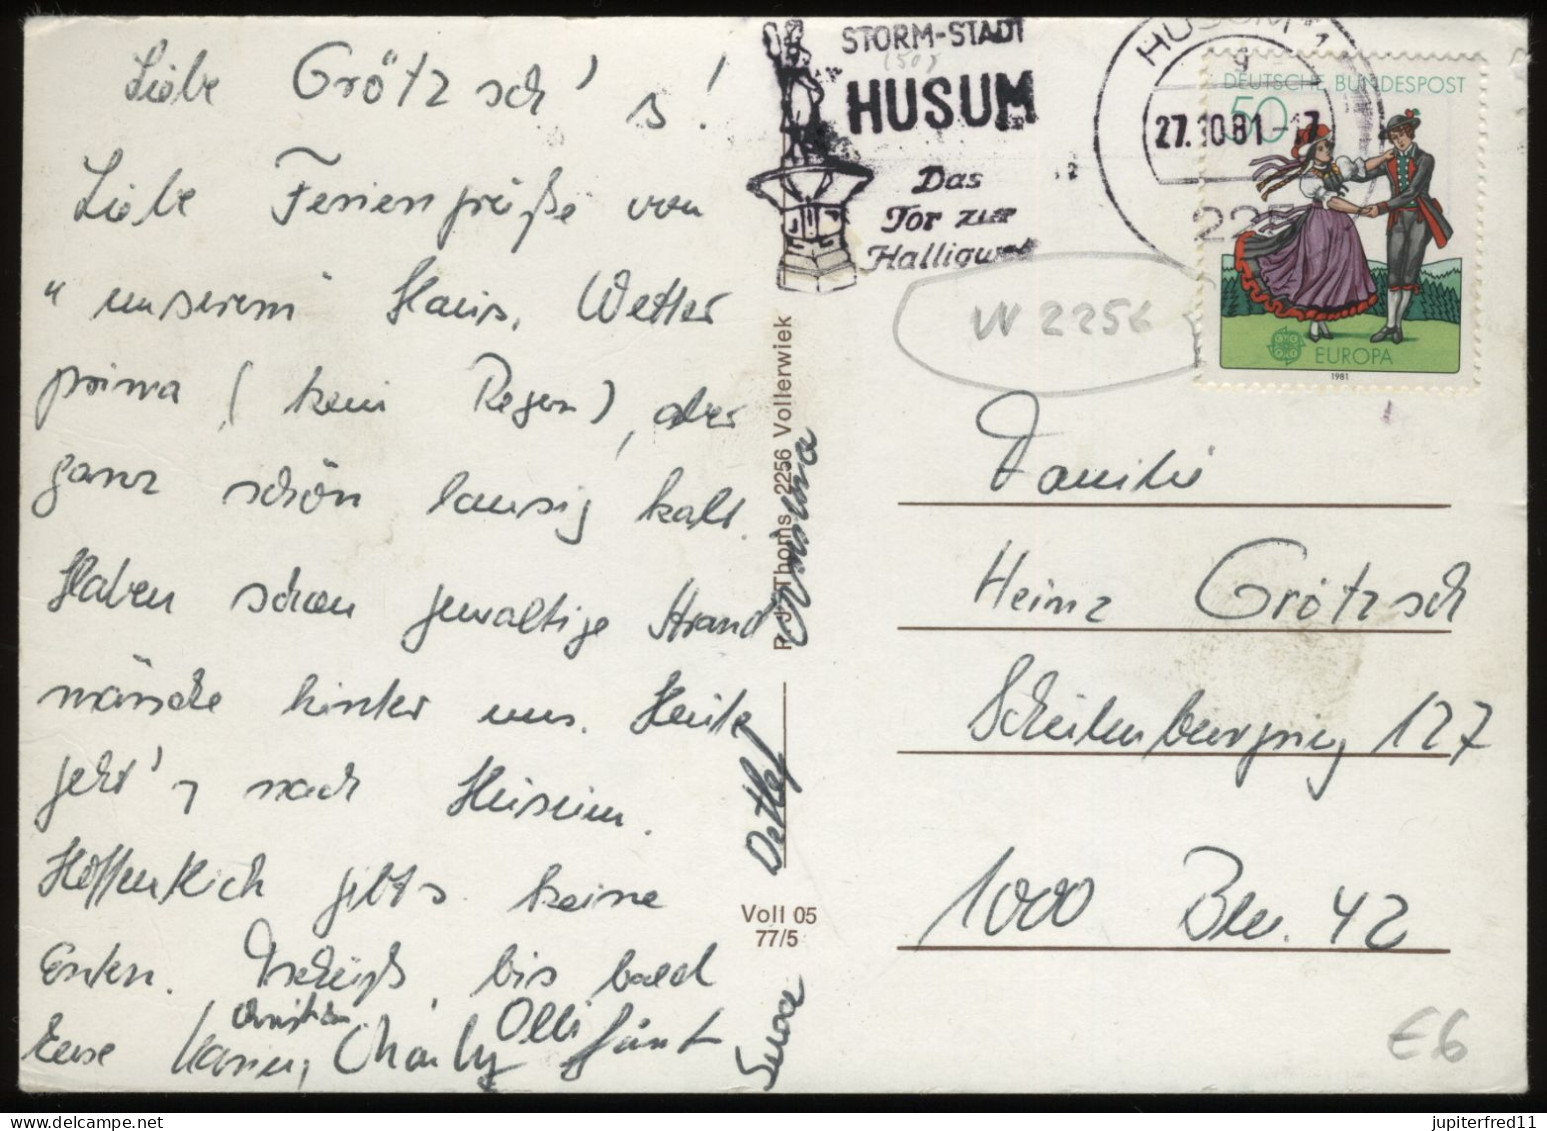 Liebe Grötzsch's!
Liebe Feriengrüße von
"unserem" Haus. Wetter
prima (kein Regen), aber
ganz schön lausig kalt.
Haben schon gewaltige Strand
märsche hinter uns. Heute
geht's nach Husum.
Hoffentlich gibts keine
Enten. Tschüß, bis bald
Eure
Christian
Charly
Olli
Detlef
Voll 05
77/5
P. J. Thoms 2256 Vollerwiek
STORM-STADT
(50)
HUSUM
Das
Tor zur
Halligwelt
HUSUM 1
g
27.10.81-17
225
DEUTSCHE BUNDESPOST
50
EUROPA
1981
W 2256
Familie
Heinz Grötzsch
127
1000 Bln. 42
€6
jupiterfred11